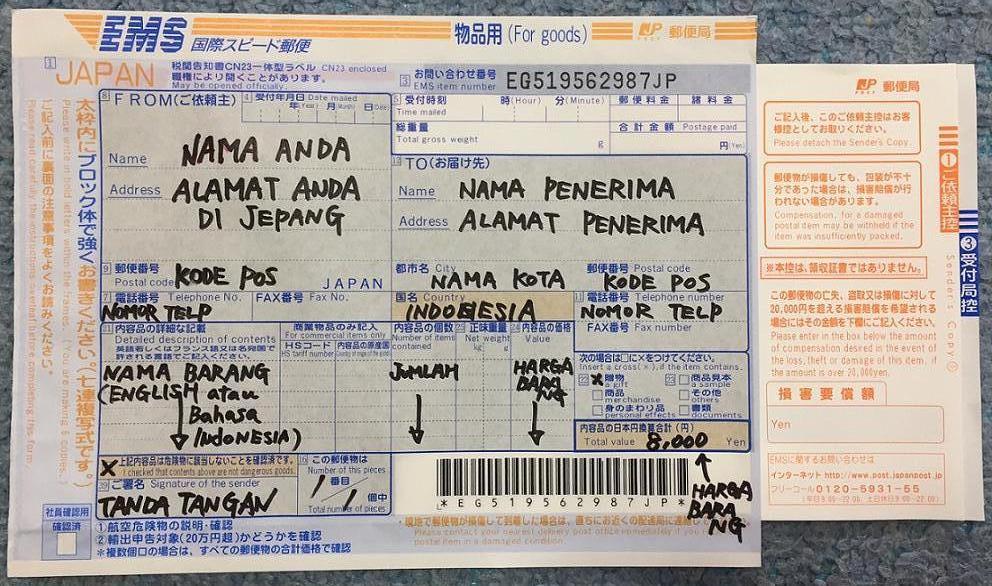 EMS 国際スピード郵便
物品用 (For goods)
JP POST 郵便局
JAPAN
税関告知書CN23一体型ラベル CN23 enclosed
職権により開くことがあります。
May be opened officially.
お問い合わせ番号
EMS item number
EG519562987JP
FROM(ご依頼主)
受付年月日 Date mailed
受付時刻
Time mailed
時(Hour) 分(Minute)
郵便料金
諸料金
総重量
Total gross weight
g
合計金額 Postage paid
円(Yen)
Name
NAMA ANDA
Address
ALAMAT ANDA
DI JEPANG
郵便番号
Postal code
KODE POS
JAPAN
電話番号 Telephone No.
FAX番号 Fax No.
NOMOR TELP
TO(お届け先)
Name
NAMA PENERIMA
Address
ALAMAT PENERIMA
都市名 City
NAMA KOTA
郵便番号 Postal code
KODE POS
国名 Country
INDONESIA
電話番号 Telephone number
NOMOR TELP
FAX番号 Fax number
内容品の詳細な記載
Detailed description of contents
商業物品のみ記入
For commercial items only
HSコード
HS tariff number
内容品の原産国
内容品の個数
正味重量
Net weight
内容品の価格
Value
NAMA BARANG
(ENGLISH atau
Bahasa
Indonesia)
JUMLAH
HARGA
BARA
NG
次の場合は□に×をつけてください。
Insert a cross(×), if the item contains.
X
贈物
a gift
商品見本
a sample
商品
merchandise
その他
others
身のまわり品
personal effects
書類
documents
内容品の日本円換算合計(円)
Total value
8,000
Yen
HARGA
BARA
NG
X
上記内容品は危険物に該当しないことを確認済です。
I checked that contents above are not dangerous goods.
ご署名 Signature of the sender
TANDA TANGAN
この郵便物は
Number of this pieces
1 番目
1 個中
Total number of pieces
*EG519562987JP*
社員確認用
確認済
①航空危険物の説明・確認
②輸出申告対象(20万円超)かどうかを確認
*複数個口の場合は、すべての郵便物の合計価格で確認
太枠内にブロック体で強くお書きください。(七連複写式です。)
ご記入前に裏面の注意事項をよくお読みください。
JP POST 郵便局
ご記入後、このご依頼主控はお客
様控としてお取りください。
Please detach the Sender's Copy.
郵便物が損傷しても、包装が不十
分であった場合は、損害賠償が行
われない場合があります。
Compensation, for a damaged
postal item may be withheld if the
item was insufficiently packed.
※本控は、領収証書ではありません。
この郵便物の亡失、盗取又は損傷に対して
20,000円を超える損害賠償を希望される
場合にはその金額を下欄にご記入ください。
Please enter in the box below the
amount of compensation desired in the event of
the loss, theft or damage of this item, if
the amount is over 20,000yen.
損害要償額
Yen
EMSに関するお問い合わせは
インターネット http://www.post.japanpost.jp
フリーコール 0120-5931-55
①ご依頼主控
Sender's Copy
③受付局控